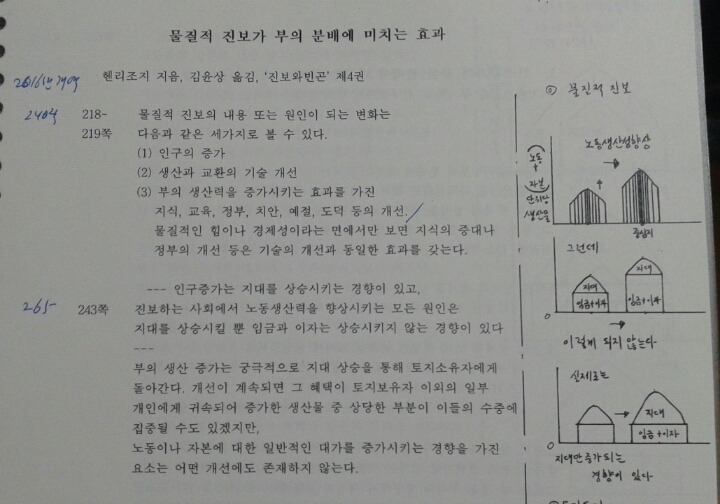 물질적 진보가 부의 분배에 미치는 효과
2016년 개역 헨리조지 지음, 김윤상 옮김, '진보와빈곤' 제4권
240쪽 218- 물질적 진보의 내용 또는 원인이 되는 변화는
219쪽 다음과 같은 세가지로 볼 수 있다.
(1) 인구의 증가
(2) 생산과 교환의 기술 개선
(3) 부의 생산력을 증가시키는 효과를 가진
지식, 교육, 정부, 치안, 예절, 도덕 등의 개선.
물질적인 힘이나 경제성이라는 면에서만 보면 지식의 증대나
정부의 개선 등은 기술의 개선과 동일한 효과를 갖는다.
--- 인구증가는 지대를 상승시키는 경향이 있고,
265 243쪽 진보하는 사회에서 노동생산력을 향상시키는 모든 원인은
지대를 상승시킬 뿐 임금과 이자는 상승시키지 않는 경향이 있다
---
부의 생산 증가는 궁극적으로 지대 상승을 통해 토지소유자에게
돌아간다. 개선이 계속되면 그 혜택이 토지보유자 이외의 일부
개인에게 귀속되어 증가한 생산물 중 상당한 부분이 이들의 수중에
집중될 수도 있겠지만,
노동이나 자본에 대한 일반적인 대가를 증가시키는 경향을 가진
요소는 어떤 개선에도 존재하지 않는다.
물질적 진보
노동생산성향상
(노동
+
자본)
단위당
생산물
중심지
그런데
지대
지대
임금+이자
임금+이자
0
이렇게 되지 않는다
실제로는
지대
임금+이자
0
지대만 증가되는
경향이 있다